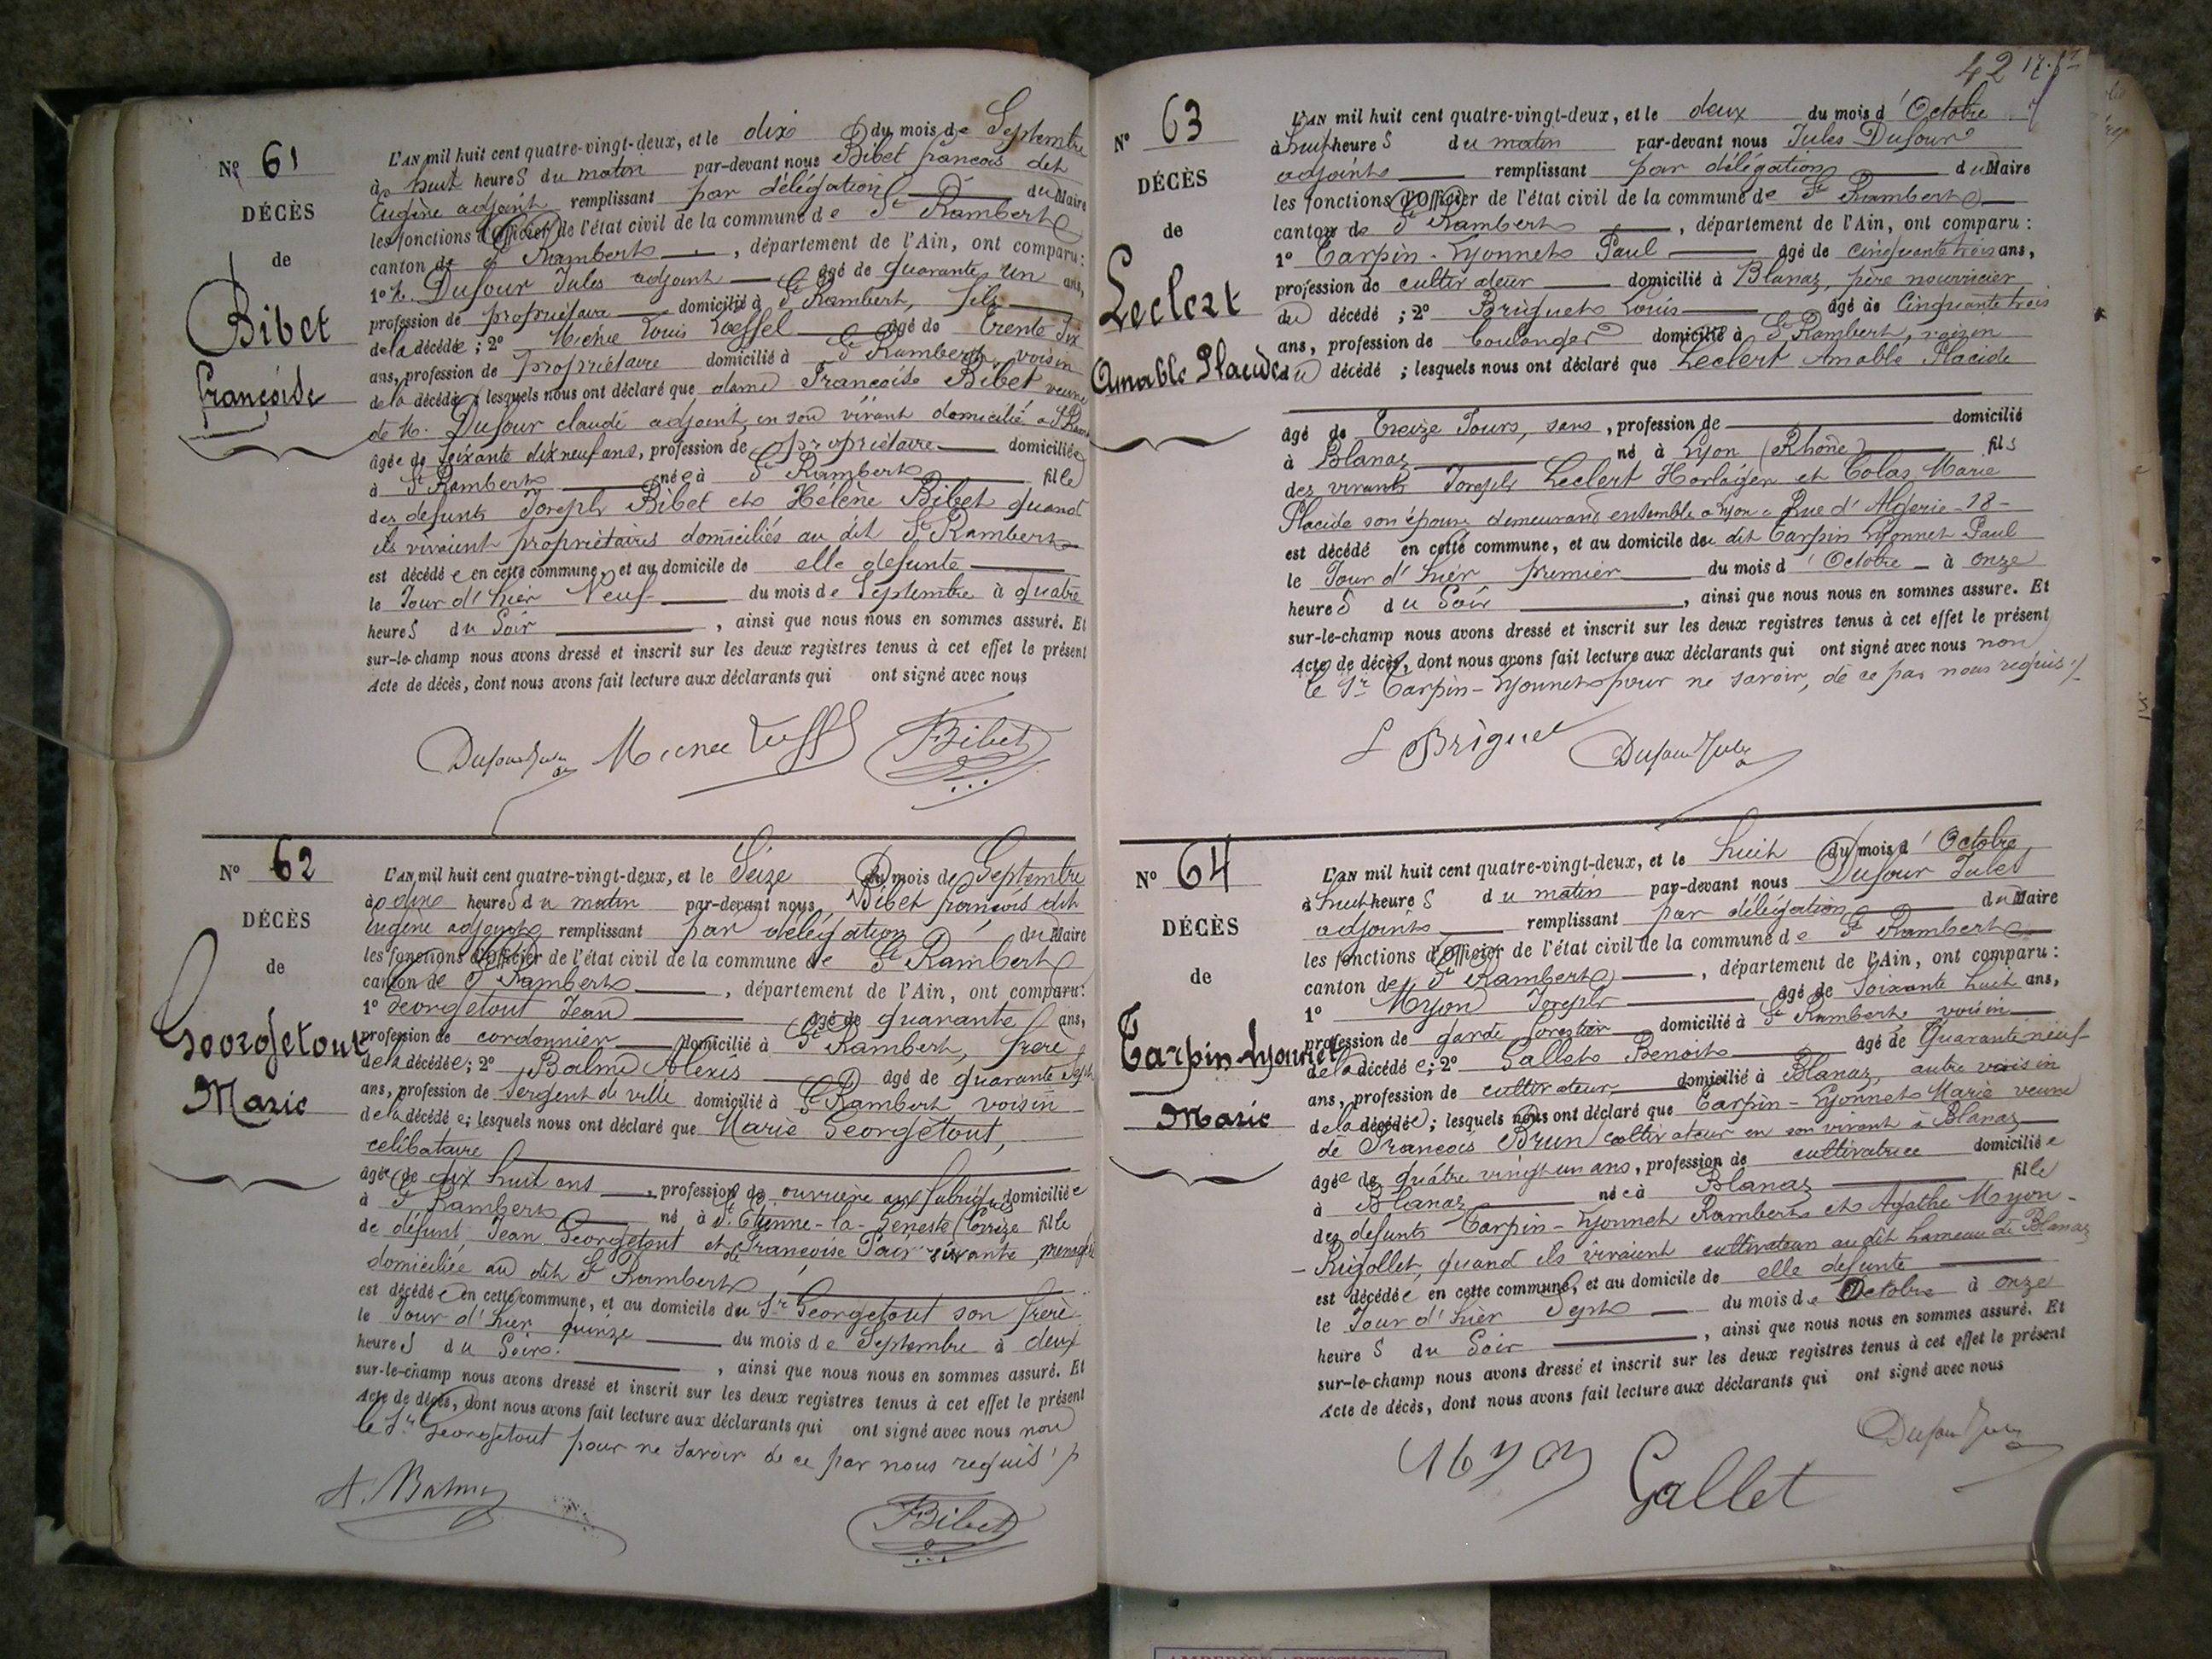 Nº 61
DÉCÈS
de
Bibet
françoise
L'AN mil huit cent quatre-vingt-deux, et le dix du mois de Septembre
à huit heures du matin par-devant nous Bibet françois dit
Eugène adjoint remplissant par délégation du Maire
les fonctions d'Officier de l'état civil de la commune de St Rambert
canton de St Rambert, département de l'Ain, ont comparu:
1º M. Dufour Jules adjoint âgé de quarante un ans,
profession de propriétaire domicilié à St Rambert, fils
de la décédée; 2º Michel Louis Loeffel âgé de trente six
ans, profession de propriétaire domicilié à St Rambert, voisin
de la décédée; lesquels nous ont déclaré que dame Françoise Bibet veuve
de M. Dufour claude adjoint, en son vivant domicilié à St
âgée de Soixante dix neuf ans, profession de propriétaire domiciliée
à St Rambert née à St Rambert fille
des defunts Joseph Bibet et Hélène Bibet quand
ils vivaient propriétaires domiciliés au dit St Rambert
est décédée en cette commune, et au domicile de elle defunte
le Jour d'hier Neuf du mois de Septembre à quatre
heures du Soir, ainsi que nous nous en sommes assuré. Et
sur-le-champ nous avons dressé et inscrit sur les deux registres tenus à cet effet le présent
Acte de décès, dont nous avons fait lecture aux déclarants qui ont signé avec nous
Dufour Jules FBibet
Nº 62
DÉCÈS
de
Georgetout
Marie
L'AN mil huit cent quatre-vingt-deux, et le Seize du mois de Septembre
à dix heures du matin par-devant nous Bibet françois dit
Eugène adjoint remplissant par délégation du Maire
les fonctions d'Officier de l'état civil de la commune de St Rambert
canton de St Rambert, département de l'Ain, ont comparu:
1º Georgetout Jean âgé de quarante ans,
profession de cordonnier domicilié à St Rambert, frere
de la décédée; 2º Balme Alexis âgé de quarante sept
ans, profession de Sergent de ville domicilié à St Rambert voisin
de la décédée; lesquels nous ont déclaré que Marie Georgetout,
celibataire
âgée de dix huit ans, profession de ouvrière aux fabriques domiciliée
à St Rambert né à St Etienne-la-Geneste (Corrèze fille
de défunt Jean Georgetout et de Françoise vivante, menagère
domiciliée au dit St Rambert
est décédée en cette commune, et au domicile du Sr Georgetout son frere
le Jour d'hier quinze du mois de Septembre à deux
heures du Soir, ainsi que nous nous en sommes assuré. Et
sur-le-champ nous avons dressé et inscrit sur les deux registres tenus à cet effet le présent
Acte de décès, dont nous avons fait lecture aux déclarants qui ont signé avec nous non
le Sr Georgetout pour ne savoir de ce par nous requis
A. Balme FBibet
42
Nº 63
DÉCÈS
de
Leclert
Amable Placide
L'AN mil huit cent quatre-vingt-deux, et le deux du mois d'Octobre
à huit heures du matin par-devant nous Jules Dufour
adjoint remplissant par délégation du Maire
les fonctions d'Officier de l'état civil de la commune de St Rambert
canton de St Rambert, département de l'Ain, ont comparu:
1º Tarpin-Lyonnet Paul âgé de cinquante trois ans,
profession de cultivateur domicilié à Blanaz, père nourricier
du décédé; 2º Briguet Louis âgé de Cinquante trois
ans, profession de boulanger domicilié à St Rambert, voisin
du décédé; lesquels nous ont déclaré que Leclert Amable Placide
âgé de Treize Jours, sans, profession de domicilié
à Blanaz né à Lyon (Rhône) fils
des vivants Joseph Leclert Horloger et Colas Marie
Placide son épouse demeurant ensemble à Lyon Rue d'Algerie-18-
est décédé en cette commune, et au domicile du dit Tarpin Lyonnet Paul
le Jour d'hier premier du mois d'Octobre à onze
heures du Soir, ainsi que nous nous en sommes assuré. Et
sur-le-champ nous avons dressé et inscrit sur les deux registres tenus à cet effet le présent
Acte de décès, dont nous avons fait lecture aux déclarants qui ont signé avec nous non
le Sr Tarpin-Lyonnet pour ne savoir, de ce par nous requis
L Briguet Dufour Jules
Nº 64
DÉCÈS
de
Tarpin-Lyonnet
Marie
L'AN mil huit cent quatre-vingt-deux, et le huit du mois d'Octobre
à huit heures du matin par-devant nous Dufour Jules
adjoint remplissant par délégation du Maire
les fonctions d'Officier de l'état civil de la commune de St Rambert
canton de St Rambert, département de l'Ain, ont comparu:
1º Myon Joseph âgé de Soixante huit ans,
profession de garde forestier domicilié à St Rambert voisin
de la décédée; 2º Gallet Benoit âgé de Quarante neuf
ans, profession de cultivateur domicilié à Blanaz, autre voisin
de la décédée; lesquels nous ont déclaré que Tarpin-Lyonnet Marie veuve
de François Brun cultivateur en son vivant à Blanaz
âgée de quatre vingt un ans, profession de cultivatrice domiciliée
à Blanaz née à Blanaz fille
des defunts Tarpin-Lyonnet Rambert et Agathe Myon-
-Rigollet, quand ils vivaient cultivateurs au dit hameau de Blanaz
est décédée en cette commune, et au domicile de elle defunte
le Jour d'hier Sept du mois de Octobre à onze
heures du Soir, ainsi que nous nous en sommes assuré. Et
sur-le-champ nous avons dressé et inscrit sur les deux registres tenus à cet effet le présent
Acte de décès, dont nous avons fait lecture aux déclarants qui ont signé avec nous
Gallet Dufour Jules